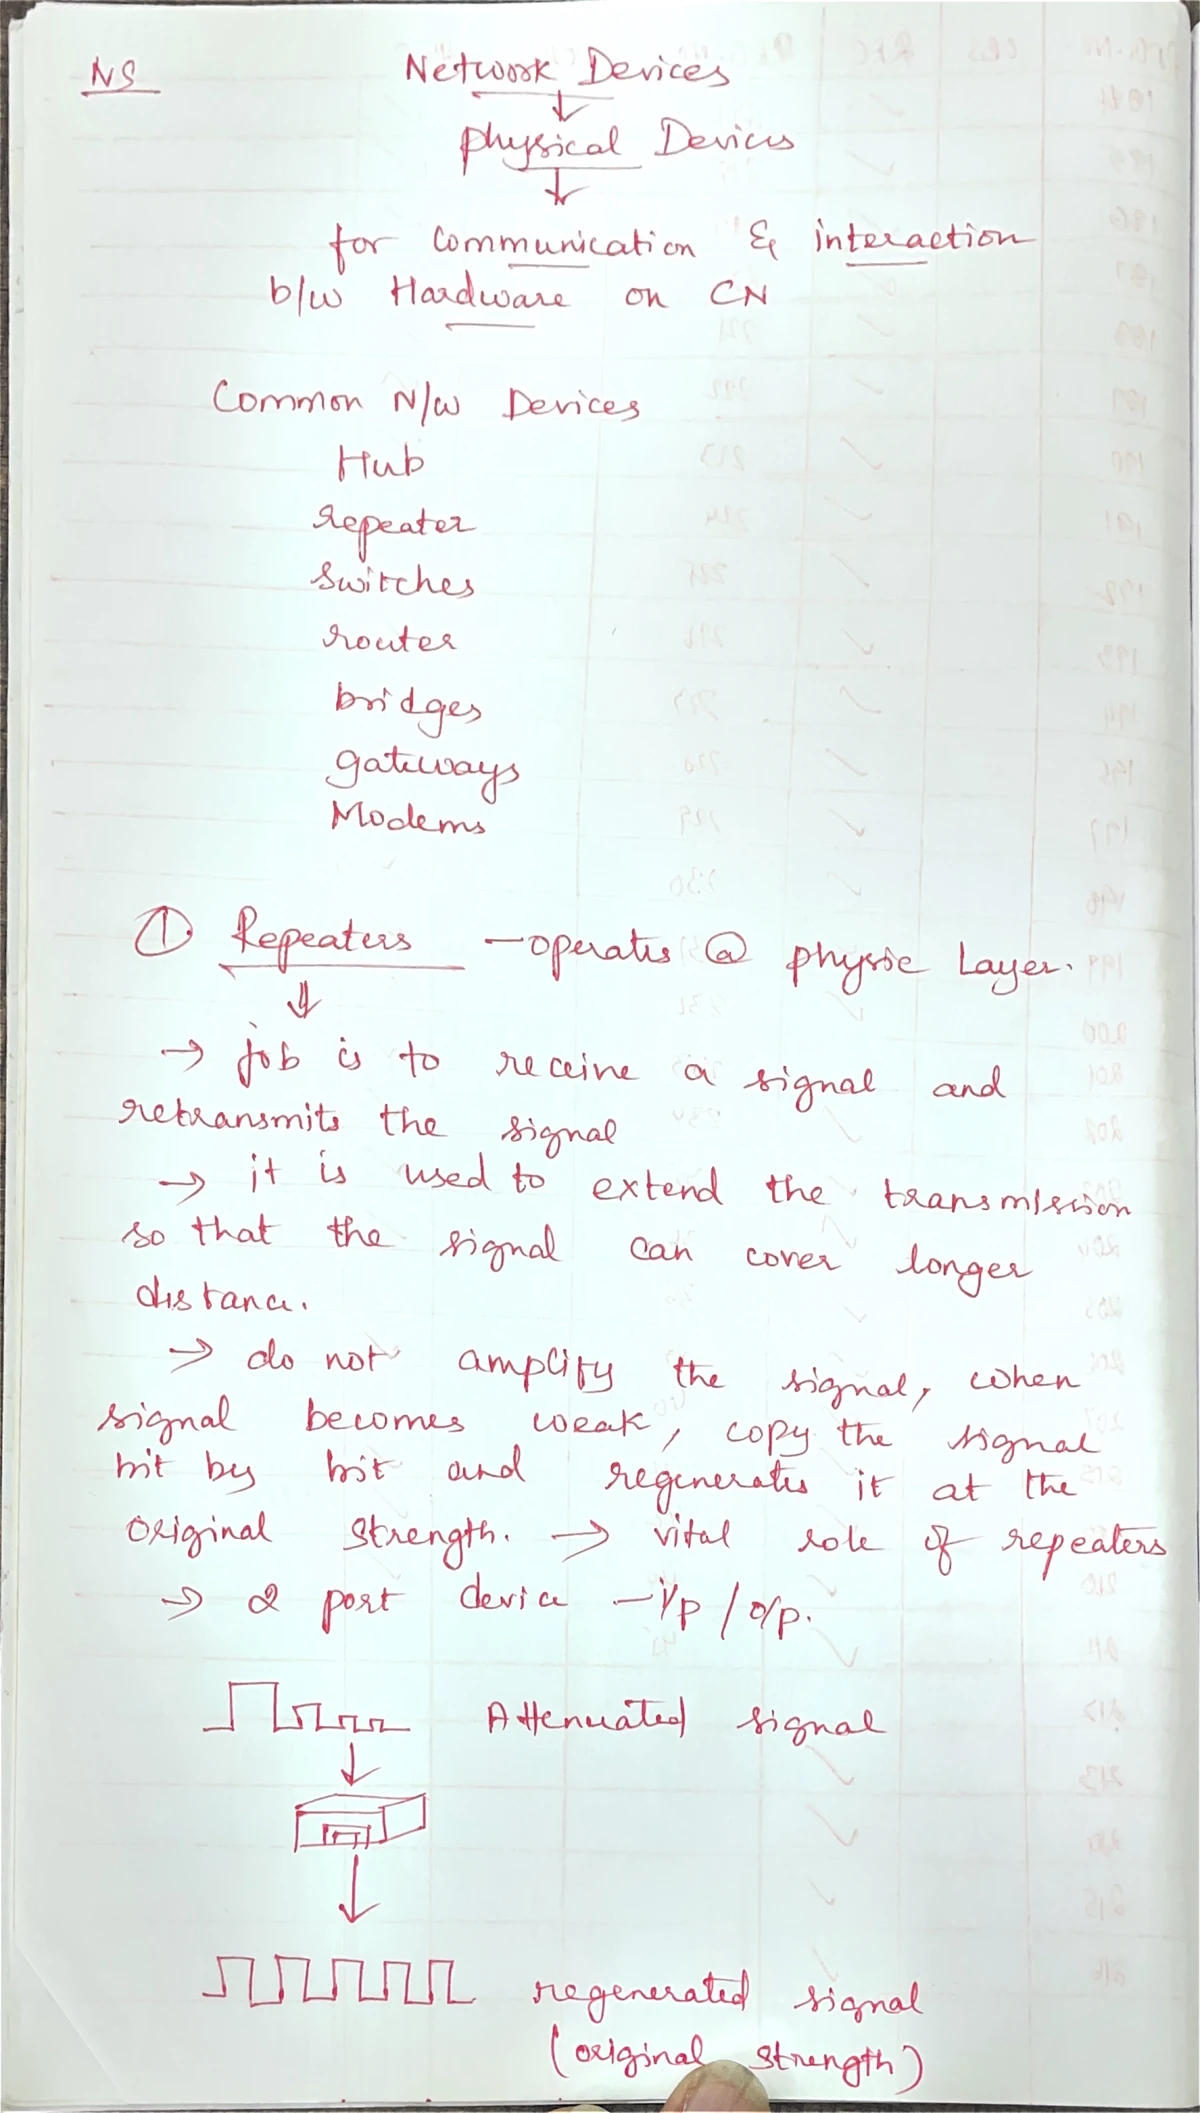 NS
Network Devices
physical Devices
for communication & interaction
b/w Hardware on CN
Common N/w Devices
Hub
repeater
switches
router
bridges
gateways
Modems
① Repeaters - operates @ physic Layer.
→ job is to receive a signal and
retransmits the signal
→ it is used to extend the transmission
so that the signal can cover longer
distance.
→ do not amplify the signal, when
signal becomes weak, copy the signal
bit by bit and regenerates it at the
original strength. → vital role of repeaters
→ 2 port device - i/p / o/p.
Attenuated signal
regenerated signal
(original strength)